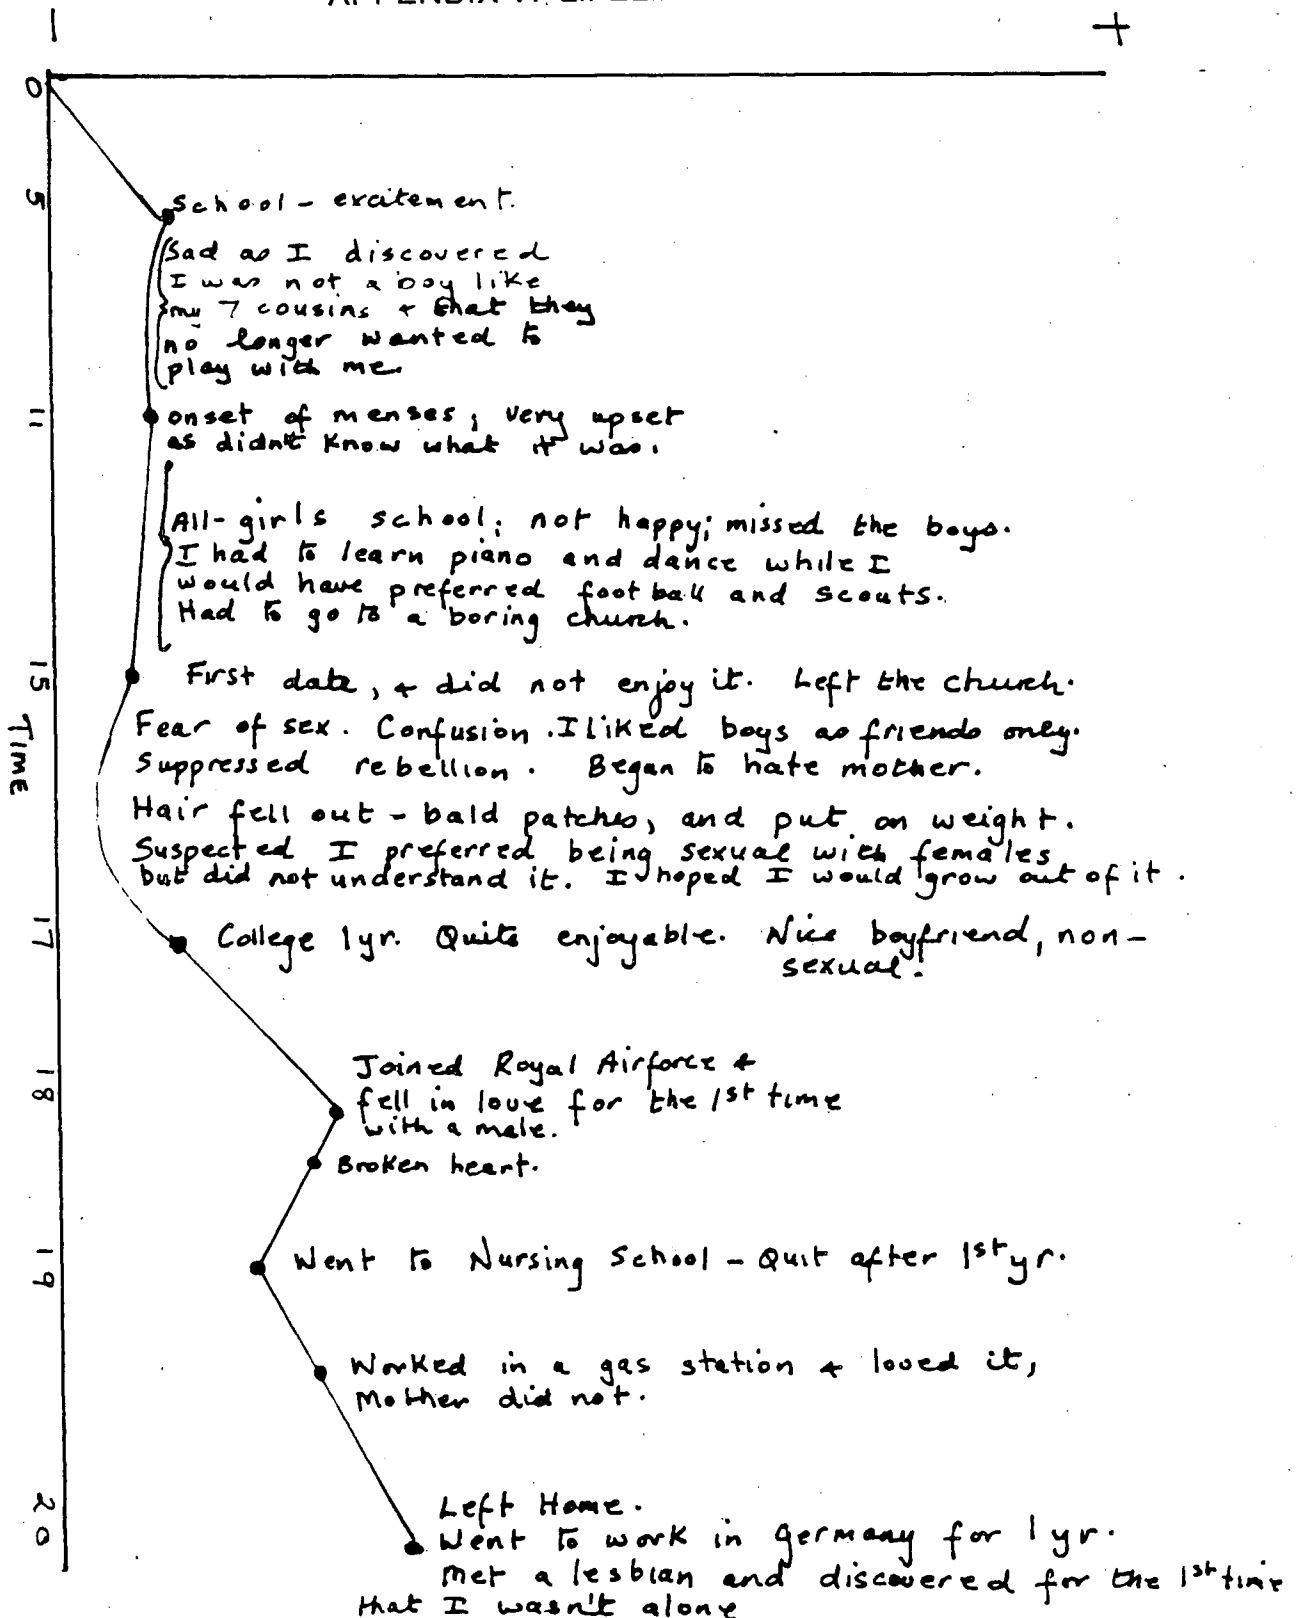 − +
0
5
School - excitement.
Sad as I discovered
I was not a boy like
my 7 cousins + that they
no longer wanted to
play with me.
11
onset of menses; very upset
as didn't know what it was.
All-girls school; not happy; missed the boys.
I had to learn piano and dance while I
would have preferred football and scouts.
Had to go to a boring church.
15
First date, + did not enjoy it. Left the church.
TIME
Fear of sex. Confusion. I liked boys as friends only.
Suppressed rebellion. Began to hate mother.
Hair fell out - bald patches, and put on weight.
Suspected I preferred being sexual with females
but did not understand it. I hoped I would grow out of it.
17
College 1yr. Quite enjoyable. Nice boyfriend, non-
sexual.
18
Joined Royal Airforce +
fell in love for the 1st time
with a male.
Broken heart.
19
Went to Nursing School - Quit after 1st yr.
Worked in a gas station + loved it,
Mother did not.
20
Left Home.
Went to work in Germany for 1 yr.
Met a lesbian and discovered for the 1st time
that I wasn't alone